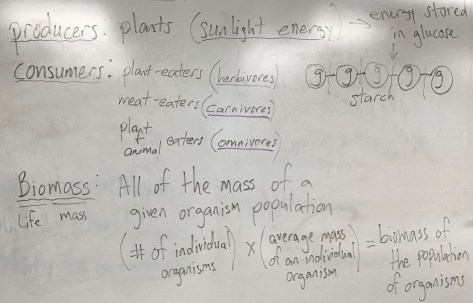 producers: plants (sunlight energy) → energy stored
in glucose
consumers: plant-eaters (herbivores)
g-g-g-g-g
starch
meat-eaters (carnivores)
plant + animal eaters (omnivores)
Biomass: All of the mass of a
Life mass
given organism population
(# of individual organisms) × (average mass of an individual organism) = biomass of the population of organisms